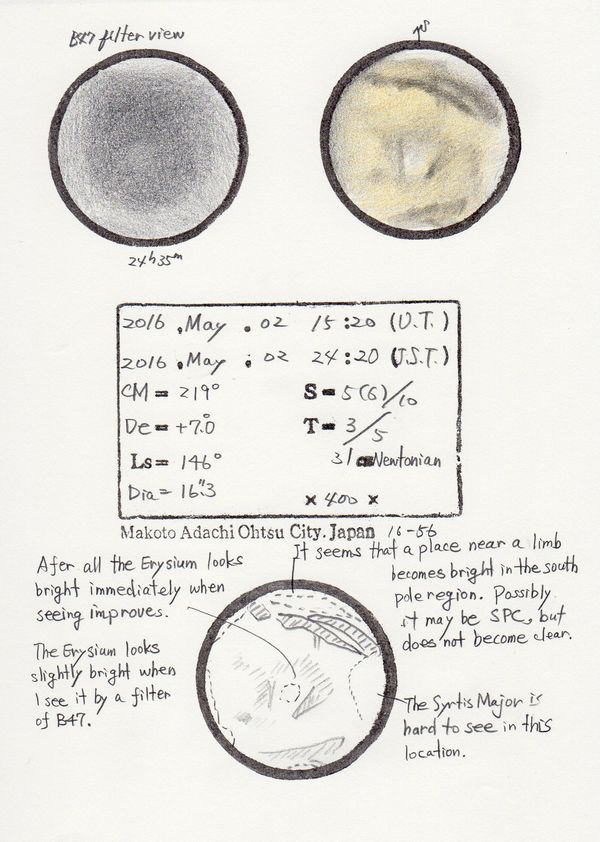 B47 filter view
24h35m
2016 . May . 02 15:20 (U.T.)
2016 . May . 02 24:20 (J.S.T.)
CM = 219° S = 5(6)/10
De = +7.0° T = 3/5
Ls = 146° 31 cm Newtonian
Dia = 16".3 × 400 ×
Makoto Adachi Ohtsu City. Japan 16-56
Afer all the Erysium looks
bright immediately when
seeing improves.
It seems that a place near a limb
becomes bright in the south
pole region. Possibly
it may be SPC, but
does not become clear.
The Erysium looks
slightly bright when
I see it by a filter
of B47.
The Syrtis Major is
hard to see in this
location.